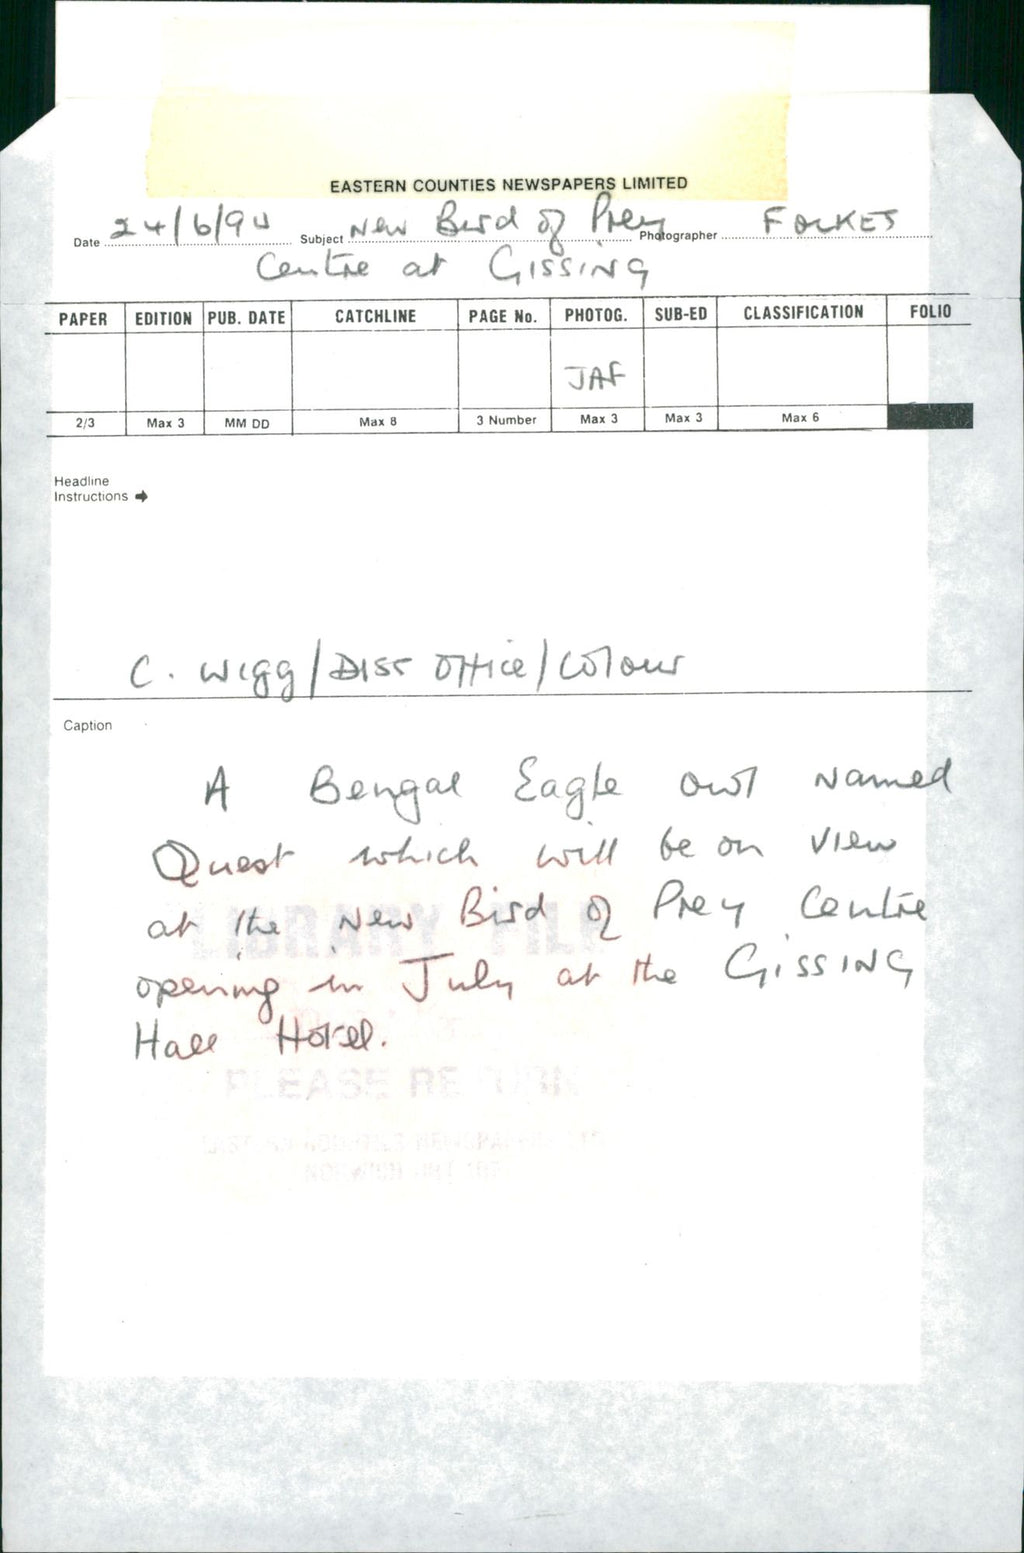 EASTERN COUNTIES NEWSPAPERS LIMITED
Date 24/6/94 Subject New Bird of Prey Photographer FOLKES
Centre at GISSING
PAPER EDITION PUB. DATE CATCHLINE PAGE No. PHOTOG. SUB-ED CLASSIFICATION FOLIO
JAF
2/3 Max 3 MM DD Max 8 3 Number Max 3 Max 3 Max 6
Headline
Instructions ➔
C. Wigg/Dist Office/Colour
Caption
A Bengal Eagle owl named
Quest which will be on view
at the New Bird of Prey Centre
opening in July at the GISSING
Hall Hotel.
LIBRARY FILE
PLEASE RETURN
EASTERN COUNTIES NEWSPAPERS LTD
NORWICH